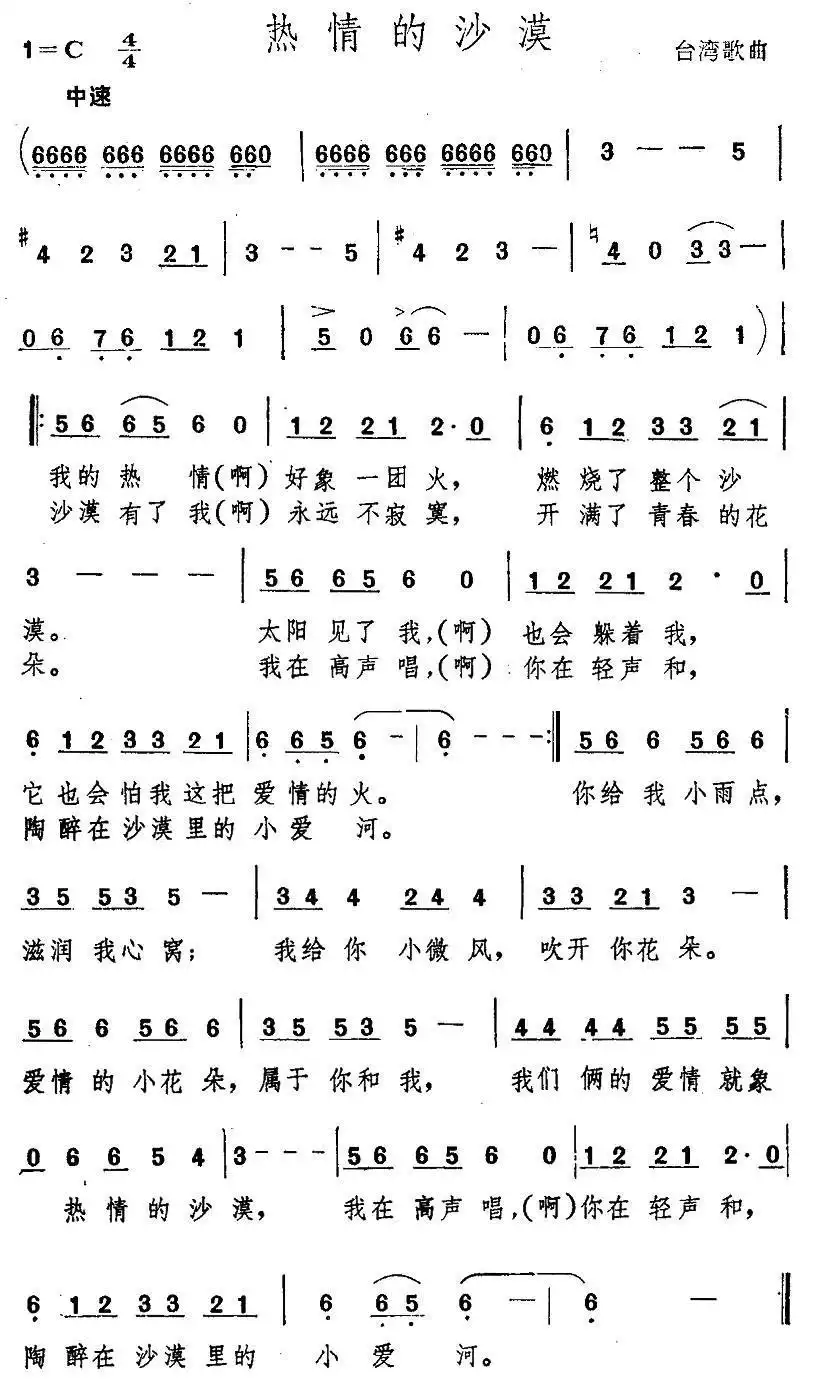 热情的沙漠
1=C 4/4
台湾歌曲
中速
(6666 666 6666 660 | 6666 666 6666 660 | 3 — — 5 |
#4 2 3 21 | 3 - - 5 | #4 2 3 — | ♮4 0 33 — |
06 76 12 1 | 5 0 66 — | 06 76 12 1) |
‖: 56 65 6 0 | 12 21 2·0 | 6 12 33 21 |
我的热 情(啊)好象一团火, 燃烧了整个沙
沙漠有了我(啊)永远不寂寞, 开满了青春的花
3 — — — | 56 65 6 0 | 12 21 2 · 0 |
漠。 太阳见了我,(啊) 也会躲着我,
朵。 我在高声唱,(啊) 你在轻声和,
6 12 33 21 | 6 65 6 - | 6 - - - :‖ 56 6 56 6 |
它也会怕我这把爱情的火。 你给我小雨点,
陶醉在沙漠里的小爱河。
35 53 5 — | 34 4 24 4 | 33 21 3 — |
滋润我心窝; 我给你小微风, 吹开你花朵。
56 6 56 6 | 35 53 5 — | 44 44 55 55 |
爱情的小花朵, 属于你和我, 我们俩的爱情就象
0 6 6 5 4 | 3 - - - | 56 65 6 0 | 12 21 2·0 |
热情的沙漠, 我在高声唱,(啊)你在轻声和,
6 12 33 21 | 6 65 6 — | 6 — ‖
陶醉在沙漠里的小爱河。